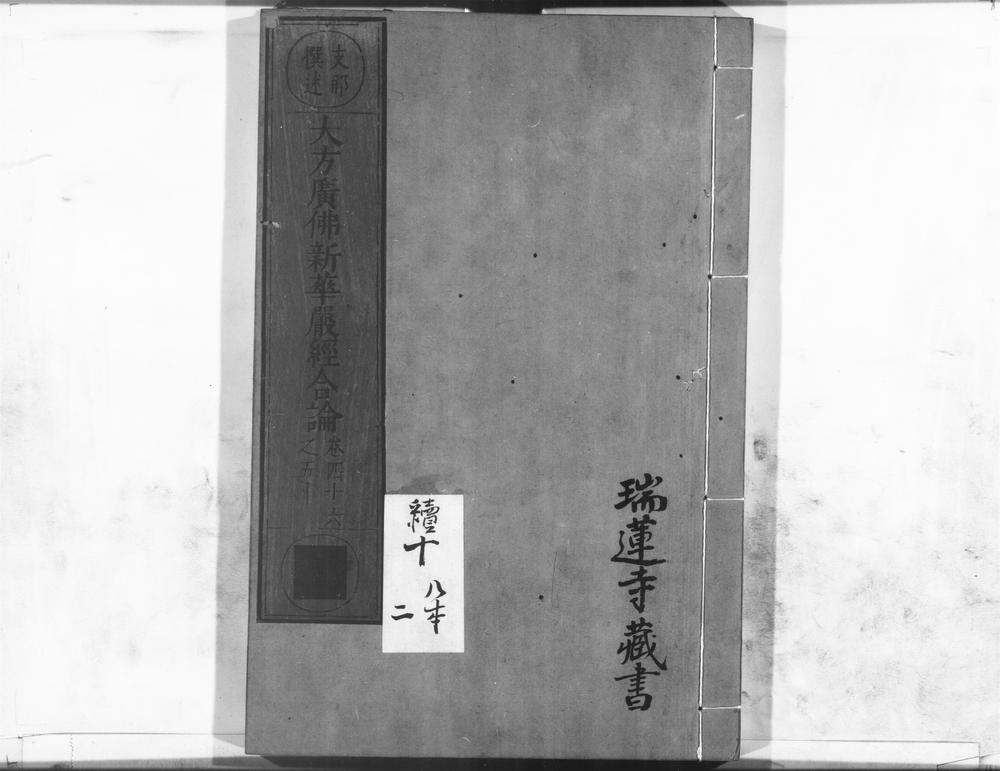 瑞蓮寺藏書
續十
八本
二
支那
撰述
大方廣佛新華嚴經合論
卷四十六
之五十